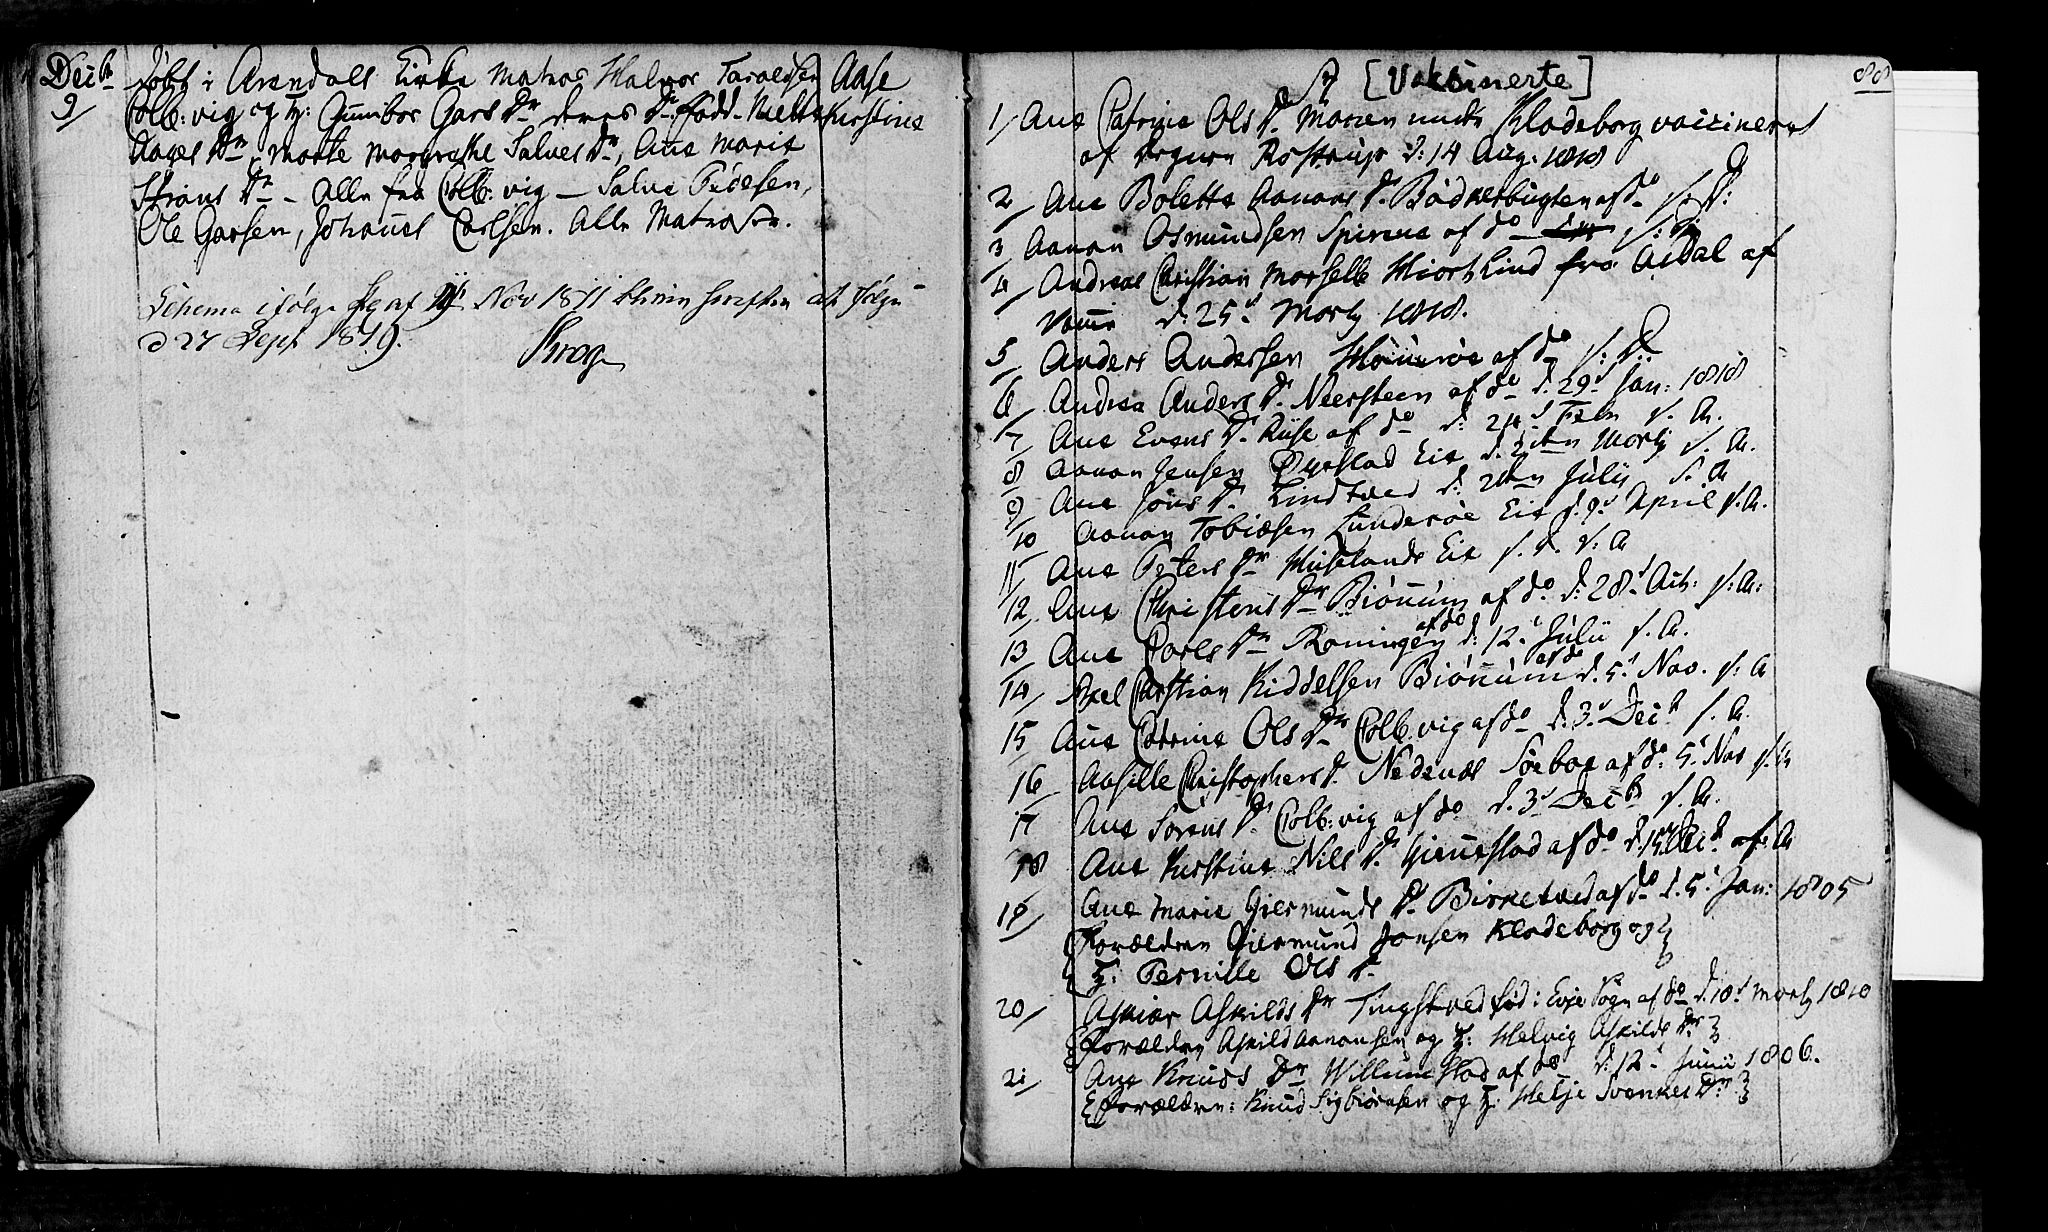 Decbr
9/
Døbt i Arendals Kirke Matros Halvor Taraldsen
Aase
Colb:vig og H: Gunnbor Gars Dr deres Dr. fødd. Mette
Kirstine
Aages Dr, Marte Margrethe Salves Dr, Ane Marie
Dr - Alle fra Colb:vig - Salve Pedersen,
Ole Garsen, Johannes Carlsen. Alle Matroser.
Schema ifølge af Nov 1811 at følge
d 27 Sept 1819.
Krog
A [Vaksinerte]
88
1/ Ane Catrine Ols Dr. Monen under Klodeborg vaccineret
af Degnen Rostrup d: 14 Aug. 1818
2/ Ane Bolette Aanons Dr. Bødkerbugten af do s: D:
3/ Aanon Osmundsen Spirene af do s: D:
4/ Andreas Christian Marselle Hiort Lind fra Asdal af
d. 25d Marty 1818.
5/ Anders Andersen af do s: D:
6/ Andrea Anders Dr. Neersteen af do d. 29d Jan: 1818
7/ Ane Evens Dr. Riise af do d: 24d Febr s. A.
8 Aanon Jensen Øyestad Eie d. Marty s. A.
9/ Ane Jøns Dr. Lindtved d: 2den Julii s. A
10 Aanon Tobiæsen Lunderøe Eie d. 9d April s. A.
11/ Ane Peters Dr Huselands Eie s. D. s: A
12/ Ane Christens Dr Biønnum af do d: 28d Aut: s: A:
13 Ane Carls Dr Roningen af do d: 12d Julii s. A.
14/ Axel Christian Kiddelsen Biønnum af do d. 5d Nov. s: A
15 Ane Catrine Ols Dr Colb:vig af do d: 3d Decb s. A.
16/ Aasille Christophers Dr. Nedenæs Søeboe af do 5d Nov s: A
17 Ane Sørens Dr. Colb:vig af do d. 3d Decb s. A.
18 Ane Kirstine Nils Dr. Giennestad af do d. Decb s: A
19/ Ane Marie Giermunds Dr. Birketved af do d. 5d Jan: 1805
Forældren Giermund Jonsen Klodeborg og
H: Pernille Ols Dr
20/ Askier Askilds Dr Tingstved fød i Evje Sogn af do d. 10d Marty 1810
Forældren Askild Aanonsen og H: Helvig Askilds Dr
21/ Ane Knuds Dr Willumstad af do d: 12d Junii 1806.
Forældren: Knud Sigbiørnsen og H. Helje Svenkes Dr